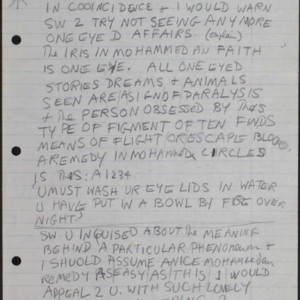 IN COOINCIDENCE + I WOULD WARN
SW 2 TRY NOT SEEING ANY MORE
ONE EYE D AFFAIRS.
THE IRIS IN MOHAMMED AN FAITH
IS ONE EYE. ALL ONE EYED
STORIES DREAMS + ANIMALS
SEEN ARE A SIGN OF PARALYSIS
+ THE PERSON OBSESSED BY THIS
TYPE OF FIGMENT OFTEN FINDS
MEANS OF FLIGHT OR ESCAPE BLOOD
A REMEDY IN MOHAMMEDAN CIRCLES
IS THIS: A1234
U MUST WASH UR EYE LIDS IN WATER
U HAVE PUT IN A BOWL BY FIRE OVER
NIGHT!
SW U INQUISED ABOUT THE MEANING
BEHIND A PARTICULAR PHENOMENON +
I SHOULD ASSUME A NICE MOHAMMEDAN
REMEDY AS EASY AS THIS I WOULD
APPEAL 2 U. WITH SUCH LONELY